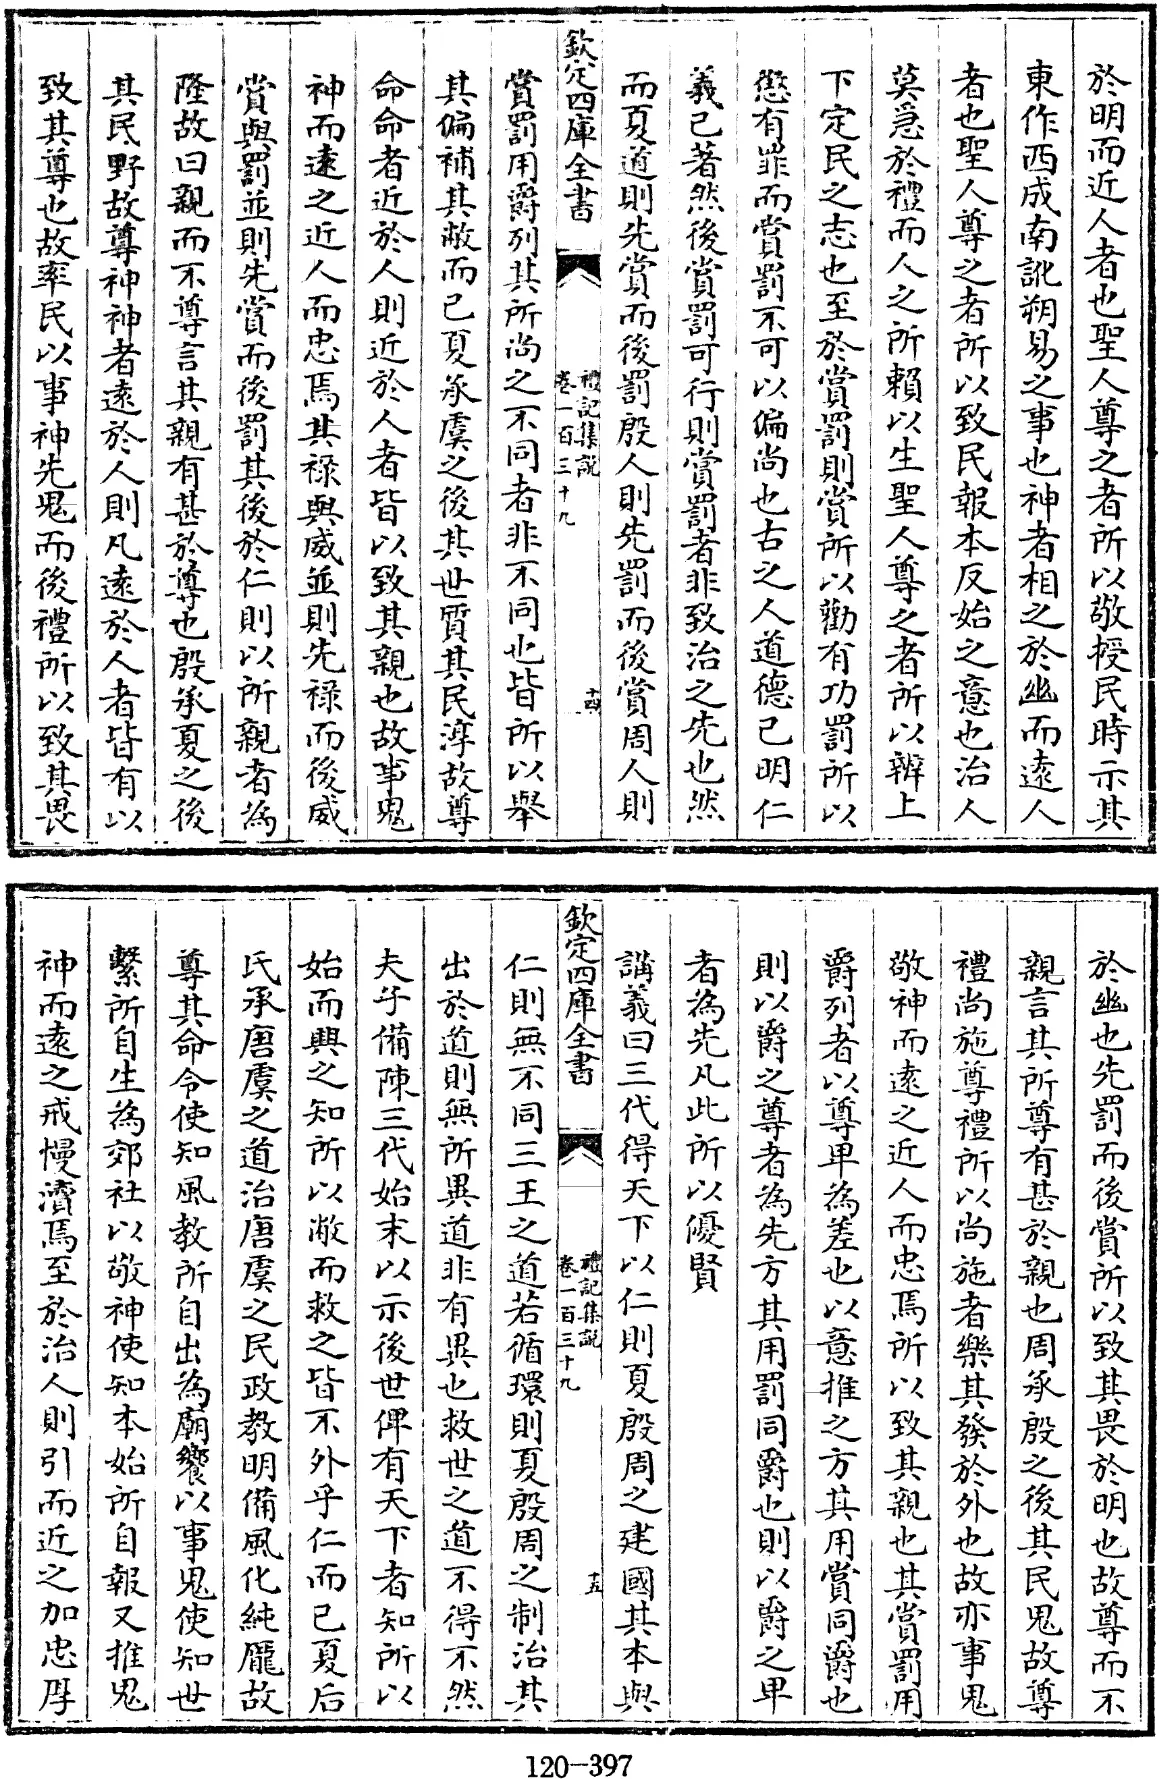 於明而近人者也聖人尊之者所以敬授民時示其
東作西成南訛朔易之事也神者相之於幽而遠人
者也聖人尊之者所以致民報本反始之意也治人
莫急於禮而人之所賴以生聖人尊之者所以辨上
下定民之志也至於賞罰則賞所以勸有功罰所以
懲有罪而賞罰不可以偏尚也古之人道德已明仁
義已著然後賞罰可行則賞罰者非致治之先也然
而夏道則先賞而後罰殷人則先罰而後賞周人則
欽定四庫全書
禮記集說
卷一百三十九
十四
賞罰用爵列其所尚之不同者非不同也皆所以舉
其偏補其敝而已夏承虞之後其世質其民淳故尊
命命者近於人則近於人者皆以致其親也故事鬼
神而遠之近人而忠焉其祿與威並則先祿而後威
賞與罰並則先賞而後罰其後於仁則以所親者為
隆故曰親而不尊言其親有甚於尊也殷承夏之後
其民野故尊神神者遠於人則凡遠於人者皆有以
致其尊也故率民以事神先鬼而後禮所以致其畏
於幽也先罰而後賞所以致其畏於明也故尊而不
親言其所尊有甚於親也周承殷之後其民鬼故尊
禮尚施尊禮所以尚施者樂其發於外也故亦事鬼
敬神而遠之近人而忠焉所以致其親也其賞罰用
爵列者以尊卑為差也以意推之方其用賞同爵也
則以爵之尊者為先方其用罰同爵也則以爵之卑
者為先凡此所以優賢
講義曰三代得天下以仁則夏殷周之建國其本與
欽定四庫全書
禮記集說
卷一百三十九
十五
仁則無不同三王之道若循環則夏殷周之制治其
出於道則無所異道非有異也救世之道不得不然
夫子備陳三代始末以示後世俾有天下者知所以
始而興之知所以敝而救之皆不外乎仁而已夏后
氏承唐虞之道治唐虞之民政教明備風化純龎故
尊其命令使知風教所自出為廟饗以事鬼使知世
繫所自生為郊社以敬神使知本始所自報又推鬼
神而遠之戒慢瀆焉至於治人則引而近之加忠厚
120-397